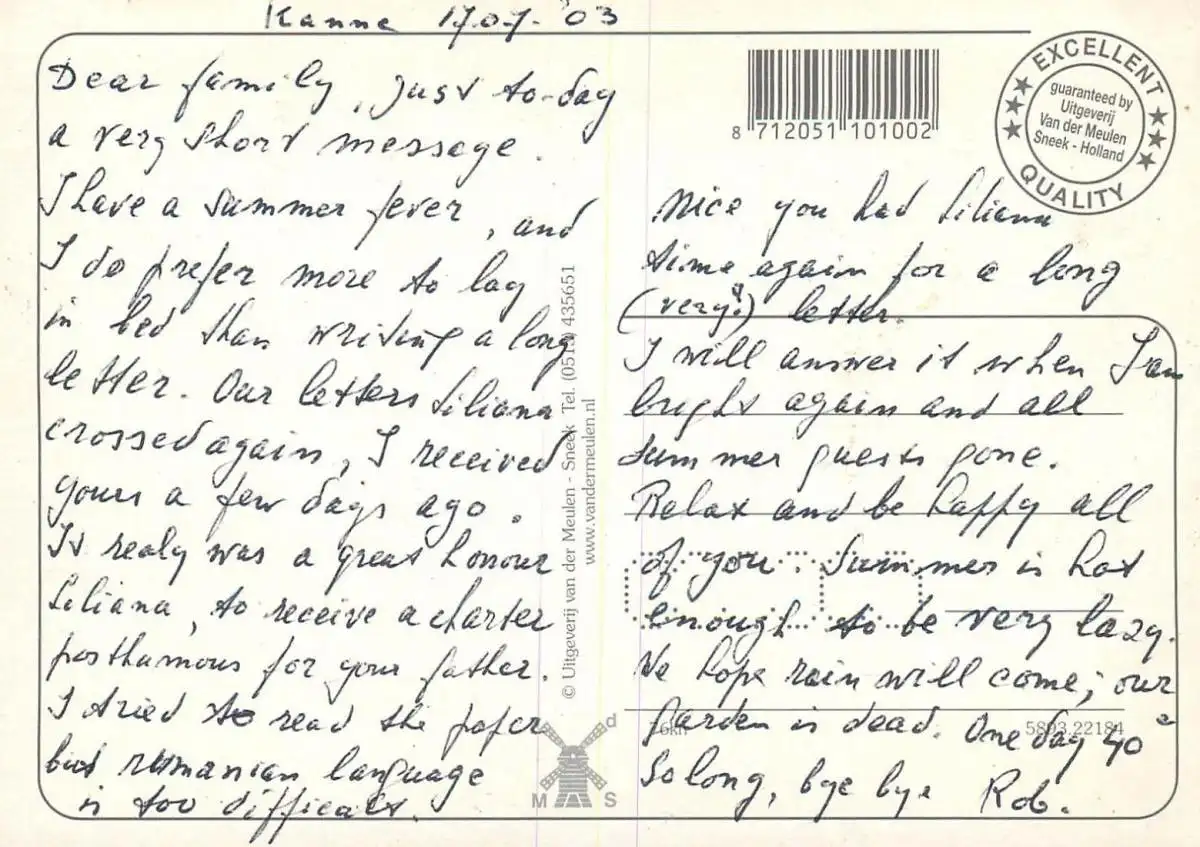 Kanne 17.07.'03
Dear family, just to-day
a very short message.
I have a summer fever, and
I do prefer more to lay
in bed than writing a long
letter. Our letters Liliana
crossed again, I received
yours a few days ago.
It realy was a great honour
Liliana, to receive a charter
posthumous for your father.
I tried to read the paper
but rumanian language
is too difficult.
© Uitgeverij van der Meulen - Sneek Tel. (0515) 435651
www.vandermeulen.nl
d
M S
8 712051 101002
EXCELLENT
guaranteed by
Uitgeverij
Van der Meulen
Sneek - Holland
QUALITY
Nice you had Liliana
time again for a long
(very!) letter.
I will answer it when I am
bright again and all
summer guests gone.
Relax and be happy all
of you. Summer is hot
enough to be very lazy.
We hope rain will come; our
garden is dead. One day 40°
5803.22184
So long, bye bye Rob.